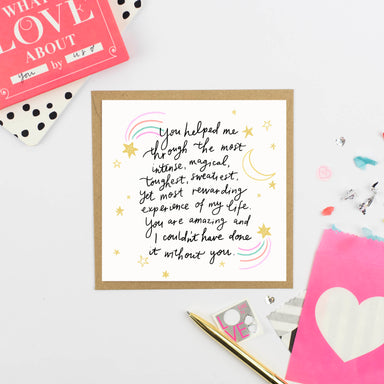 WHAT
LOVE
ABOUT
you by us
You helped me
through the most
intense, magical,
toughest, sweatiest,
yet most rewarding
experience of my life.
You are amazing and
I couldn't have done
it without you.
LOVE